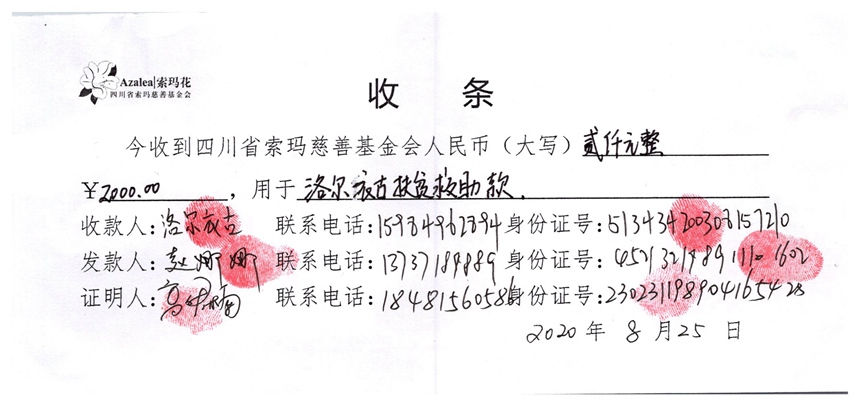 Azalea|索玛花
四川省索玛慈善基金会
收 条
今收到四川省索玛慈善基金会人民币（大写）贰仟元整
¥2000.00，用于洛尔衣古扶贫救助款.
收款人:洛尔衣古 联系电话:15984962894 身份证号:513434200308157210
发款人:赵娜娜 联系电话: 身份证号:
证明人: 联系电话:18481560586 身份证号:
2020年8月25日